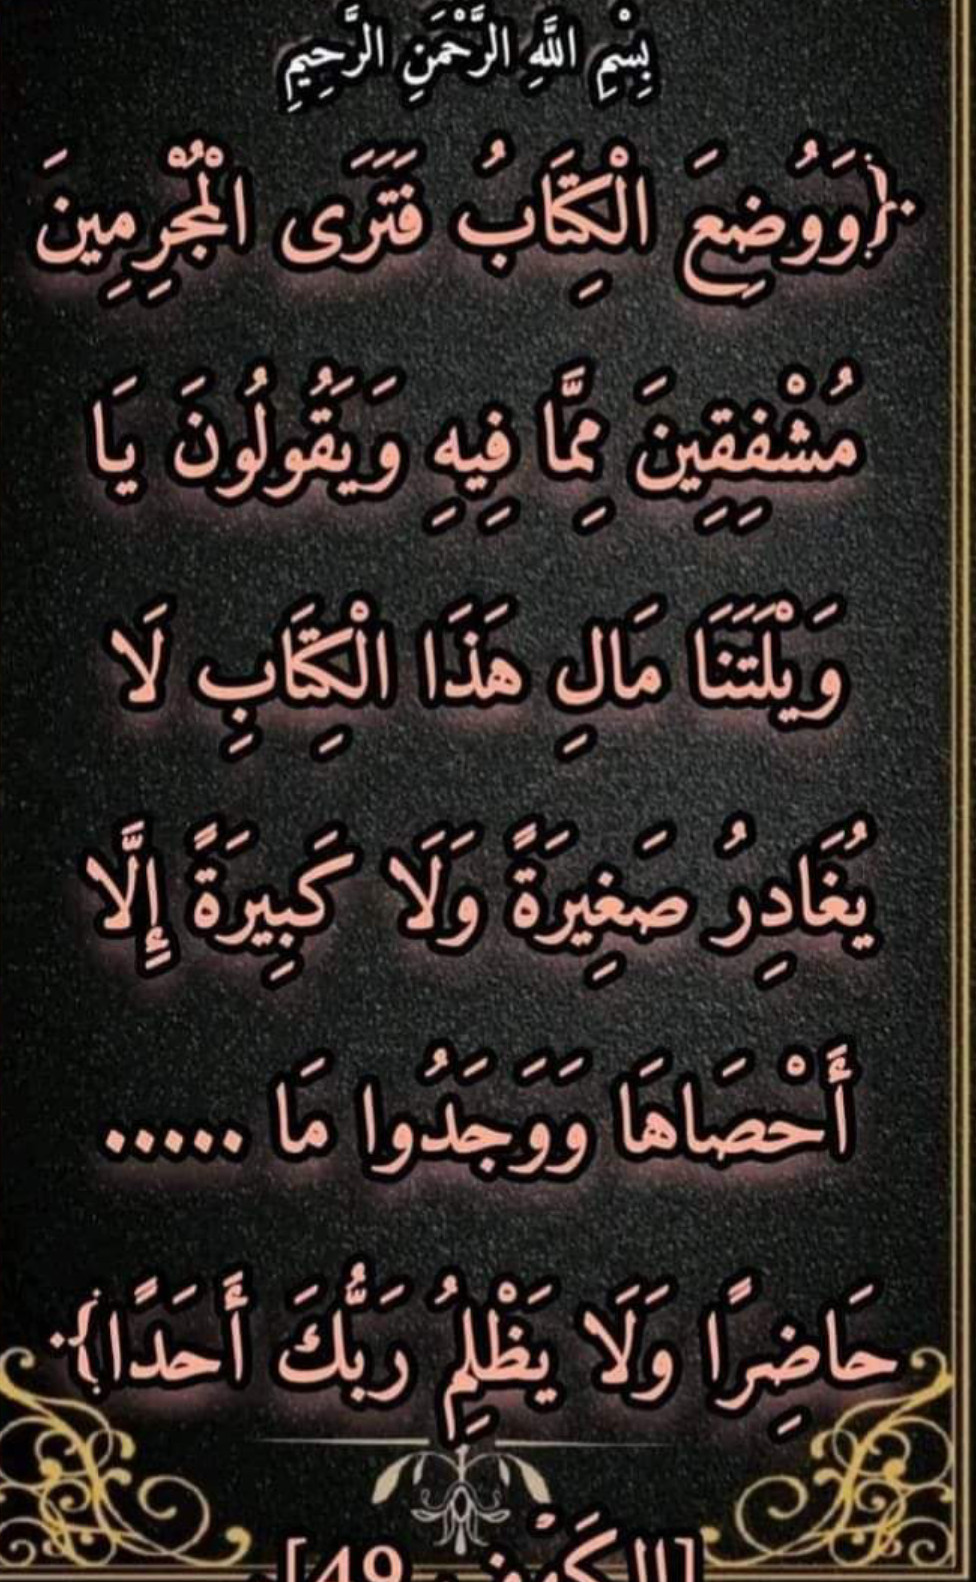 بِسْمِ اللَّهِ الرَّحْمَنِ الرَّحِيمِ
{وَوُضِعَ الْكِتَابُ فَتَرَى الْمُجْرِمِينَ
مُشْفِقِينَ مِمَّا فِيهِ وَيَقُولُونَ يَا
وَيْلَتَنَا مَالِ هَذَا الْكِتَابِ لَا
يُغَادِرُ صَغِيرَةً وَلَا كَبِيرَةً إِلَّا
أَحْصَاهَا وَوَجَدُوا مَا .....
حَاضِرًا وَلَا يَظْلِمُ رَبُّكَ أَحَدًا}
[الكَهْف: 49]